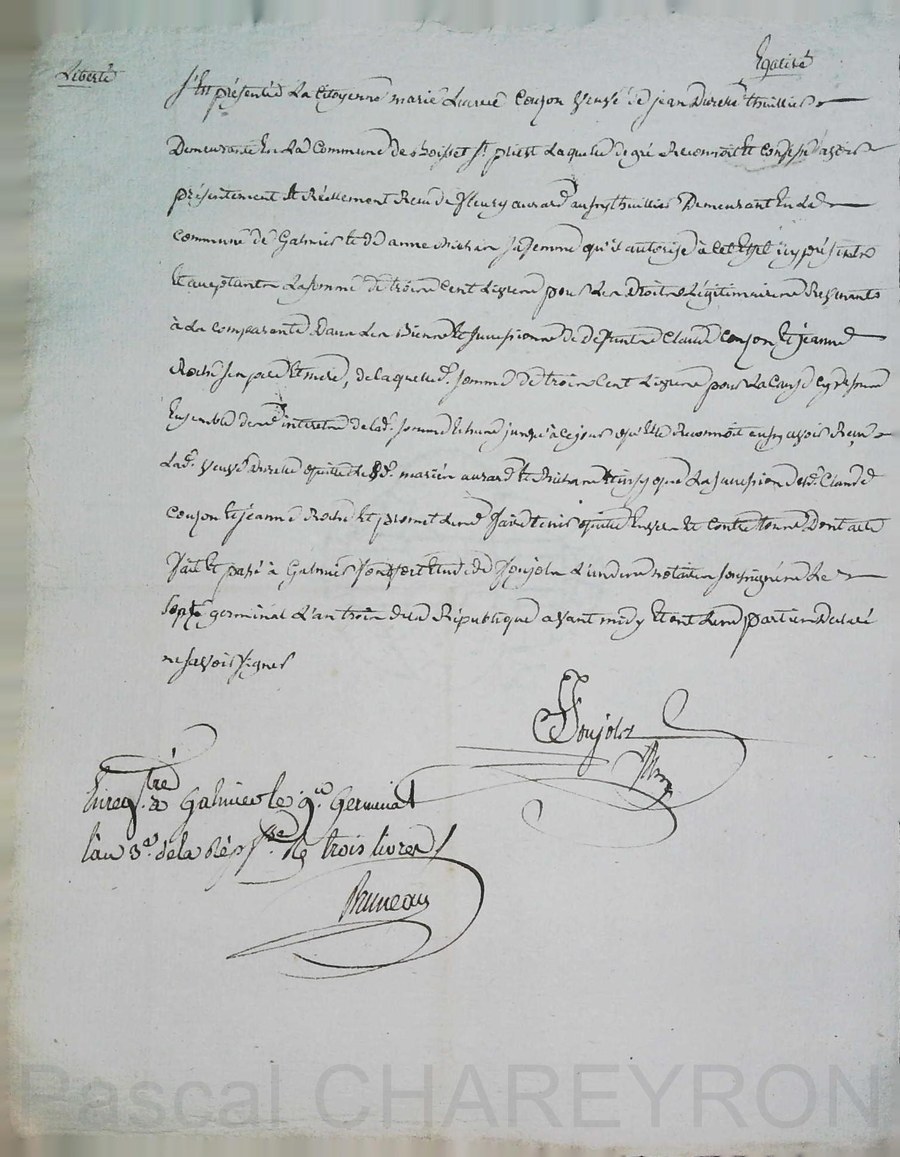 Liberté Egalité
S'Est présentée La Citoyenne marie Couzon Veuve de jean Durelle thuillier
Demeurante En La Commune de Boisset St. priest Laquelle de gré Reconnoit Et Confesse avoir
présentement Et Réellement Reçu de fleury aurard thuillier Demeurant En La
Commune de Galmier Et de anne sa femme qu'il autorise à Cet Effet icy présente
Et aceptante La somme de trois Cent Livres pour Les Droits Légitimaires
à La Comparante Dans Les Biens Et Successions de Defunts Claude Couzon Et jeanne
Roche ses pere Et mere, de laquelle somme de trois Cent Livres pour La Cause Cy dessus
Ensemble des interets de lad. somme jusqu'à Ce jour qu'Elle Reconnoit avoir Reçu
Lad. Veuve Durelle quitte Les d. mariés aurard Et que La Succession desd. Claude
Couzon Et jeanne Roche Et promet Les faire tenir quitte Envers Et Contre tous Dont acte
fait Et passé à Galmier Etude de Poujols L'un des notaires soussignés Le
Sept germinal L'an trois de la République avant midy Et ont Les parties Declaré
ne savoir signer
Poujols
Enregistré à Galmier le 9. Germinal
l'an 3e. de la Rép. trois livres
Bruneau
Pascal CHAREYRON